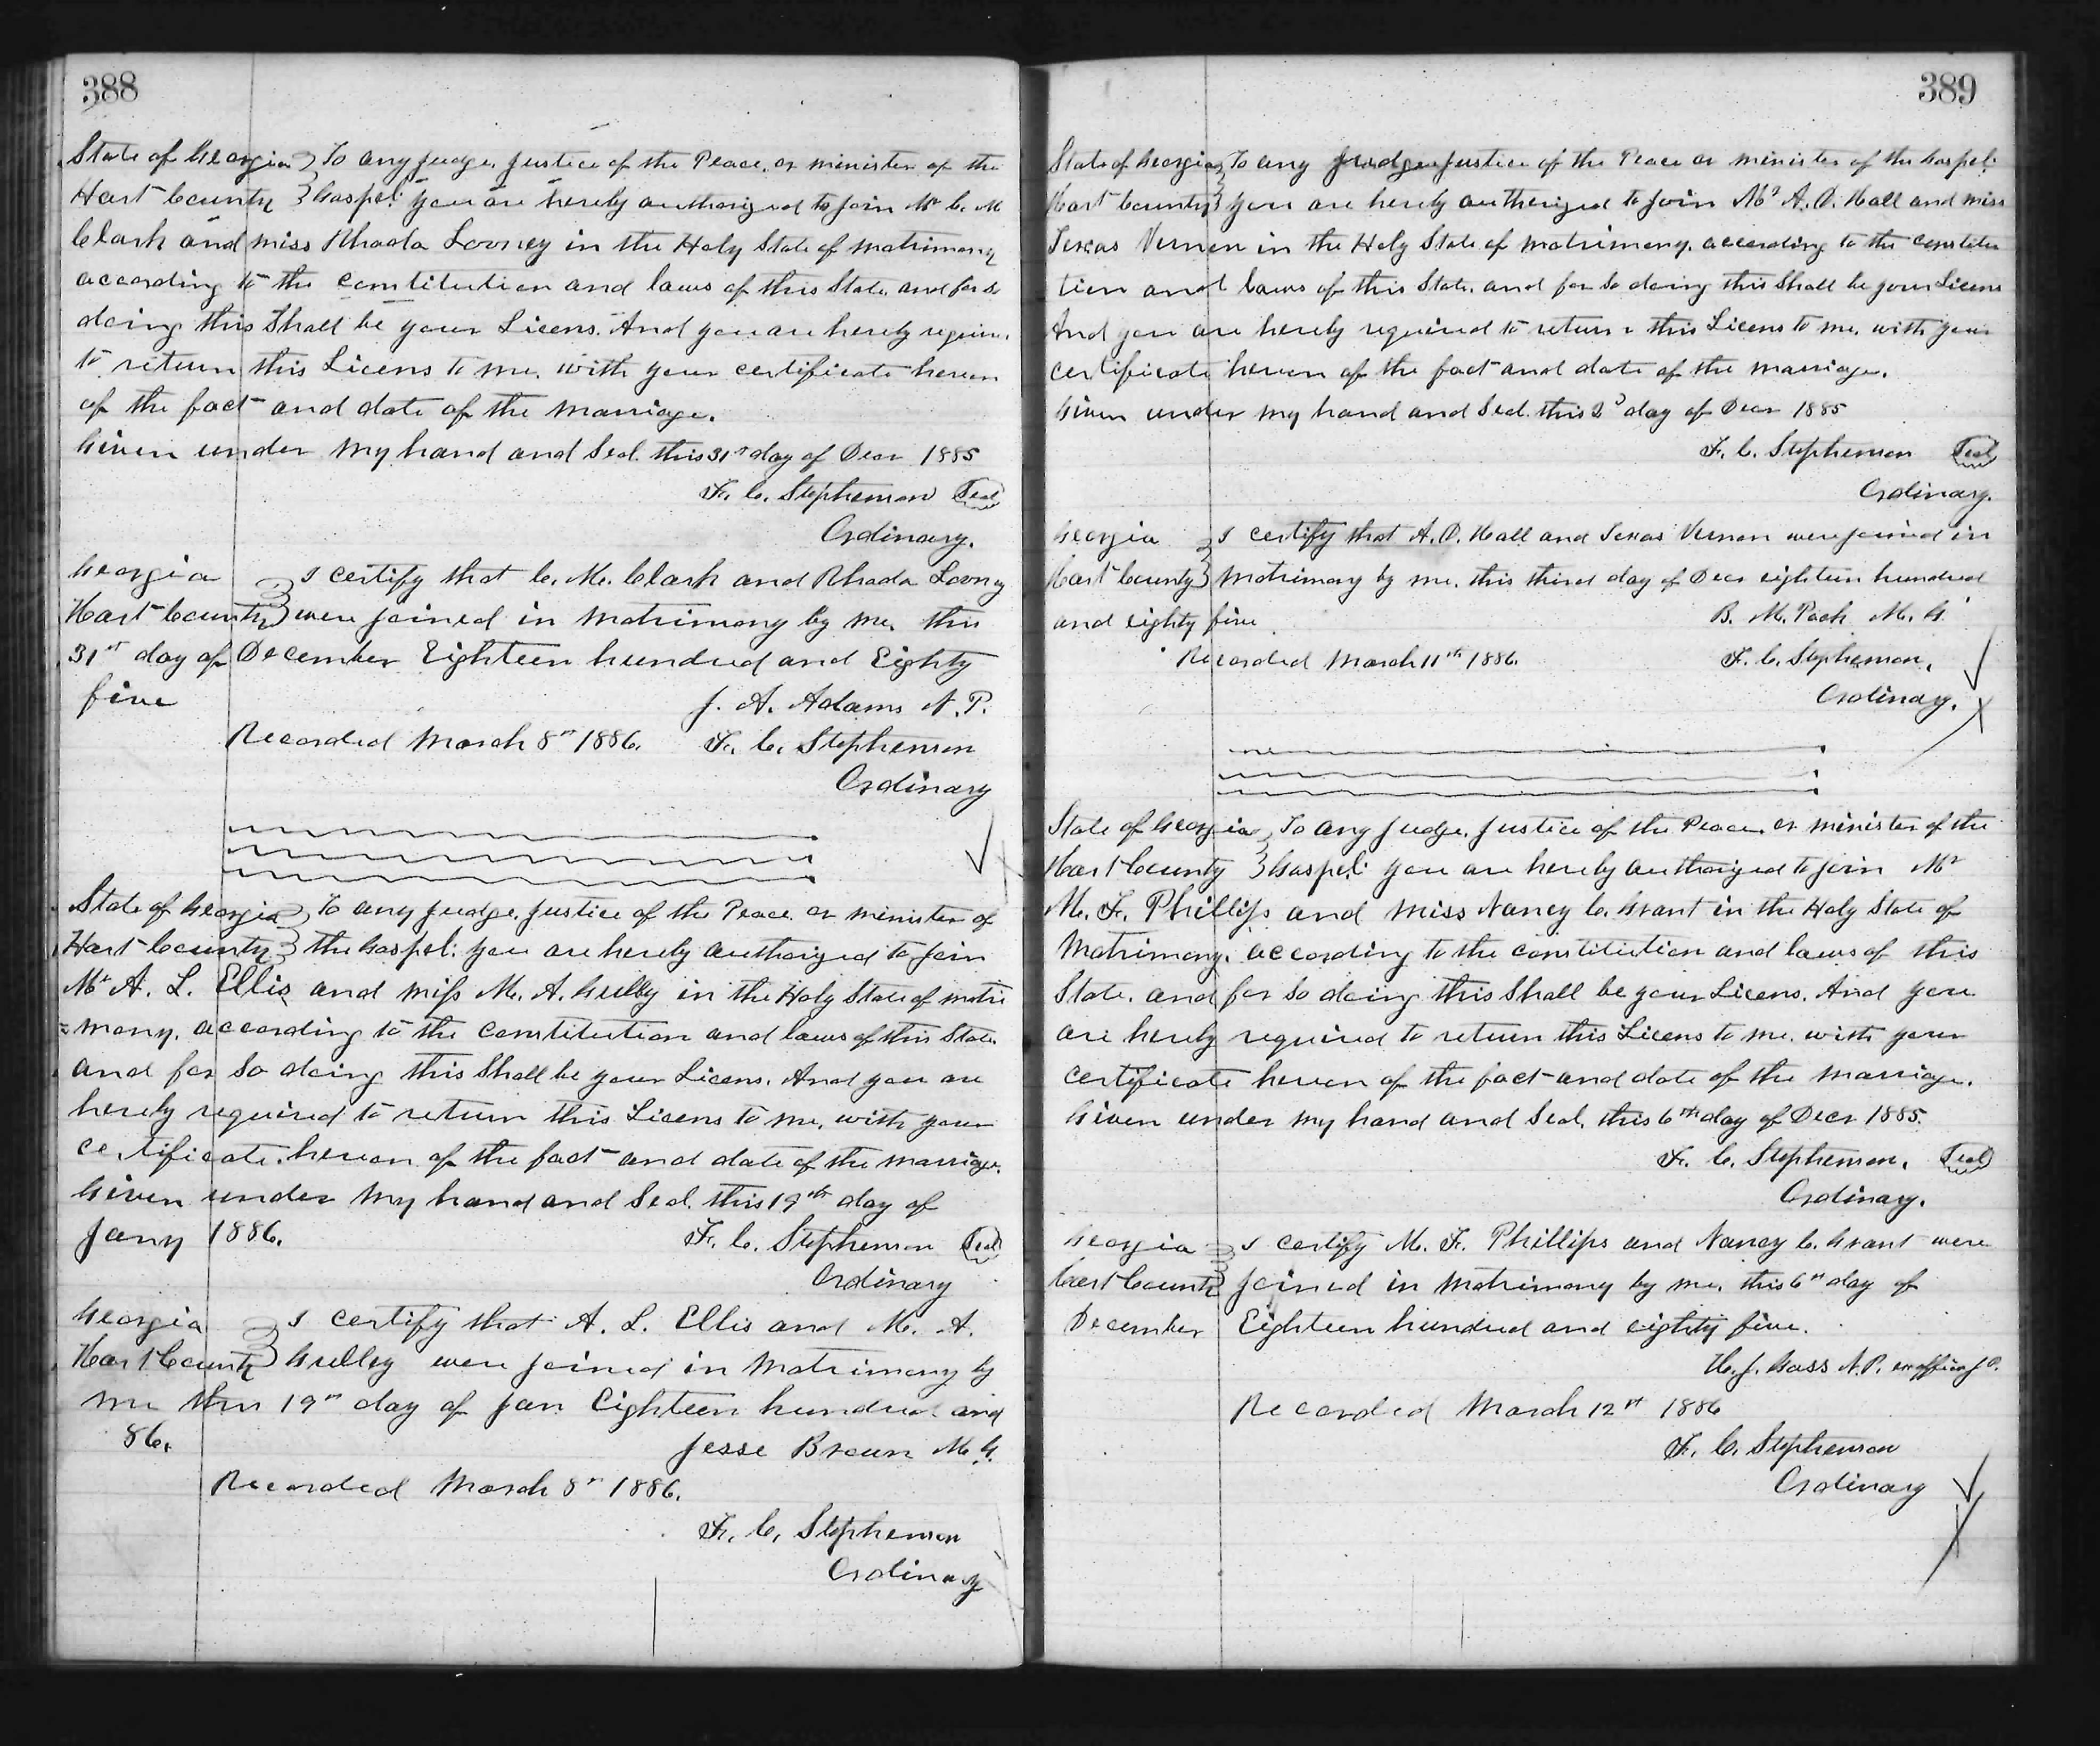 388
State of Georgia } To any Judge, Justice of the Peace, or minister of the
Hart County } Gospel: you are hereby authorized to join Mr C. M.
Clark and miss Rhoda Looney in the Holy State of matrimony
according to the constitution and laws of this State, and for so
doing this Shall be your Licens. And you are hereby requir.
to return this Licens to me, with your certificate hereon
of the fact and date of the marriage.
Given under my hand and Seal. this 31st day of Decr 1885
F. C. Stephenson Seal
Ordinary.
Georgia } I certify that C. M. Clark and Rhoda Loony
Hart County } were joined in matrimony by me, this
31st day of December Eighteen hundred and Eighty
five
J. A. Adams N. P.
Recorded March 8th 1886. F. C. Stephenson
Ordinary
State of Georgia } To any Judge, Justice of the Peace or minister of
Hart County } the Gospel: you are hereby authorized to join
Mr A. L. Ellis and miss M. A. Gulley in the Holy State of matri
=mony. according to the constitution and laws of this State.
and for so doing this Shall be your Licens. And you are
hereby required to return this Licens to me, with your
certificate hereon of the fact and date of the marriage.
Given under my hand and Seal. this 19th day of
Jany 1886. F. C. Stephenson Seal
Ordinary
Georgia } I certify that A. L. Ellis and M. A.
Hart County } Gulley were joined in matrimony by
me this 19th day of Jan Eighteen hundred and
86. Jesse Brown M. G.
Recorded March 8th 1886.
F. C. Stephenson
Ordinary
389
State of Georgia } To any Judge Justice of the Peace or minister of the Gospel:
Hart County } you are hereby authorized to join Mr A. D. Hall and miss
Texas Vernon in the Holy State of matrimony, according to the constitu
tion and laws of this State, and for so doing this Shall be your Licens
And you are hereby required to return this Licens to me, with your
certificate hereon of the fact and date of the marriage.
Given under my hand and Seal. this 3d day of Decr 1885
F. C. Stephenson Seal
Ordinary.
Georgia } I certify that A. D. Hall and Texas Vernon were joined in
Hart County } matrimony by me, this third day of Decr eighteen hundred
and eighty five B. M. Pack M. G.
Recorded March 11th 1886. F. C. Stephenson,
Ordinary.
State of Georgia } To any Judge, Justice of the Peace, or minister of the
Hart County } Gospel: you are hereby authorized to join Mr
M. F. Phillips and miss Nancy C. Grant in the Holy State of
matrimony, according to the constitution and laws of this
State, and for so doing this Shall be your Licens. And you
are hereby required to return this Licens to me, with your
certificate hereon of the fact and date of the marriage.
Given under my hand and Seal, this 6th day of Decr 1885.
F. C. Stephenson, Seal
Ordinary.
Georgia } I certify M. F. Phillips and Nancy C. Grant were
Hart County } joined in matrimony by me, this 6th day of
December Eighteen hundred and eighty five.
H. J. Goss N. P. exofficio J. P.
Recorded March 12th 1886
F. C. Stephenson
Ordinary